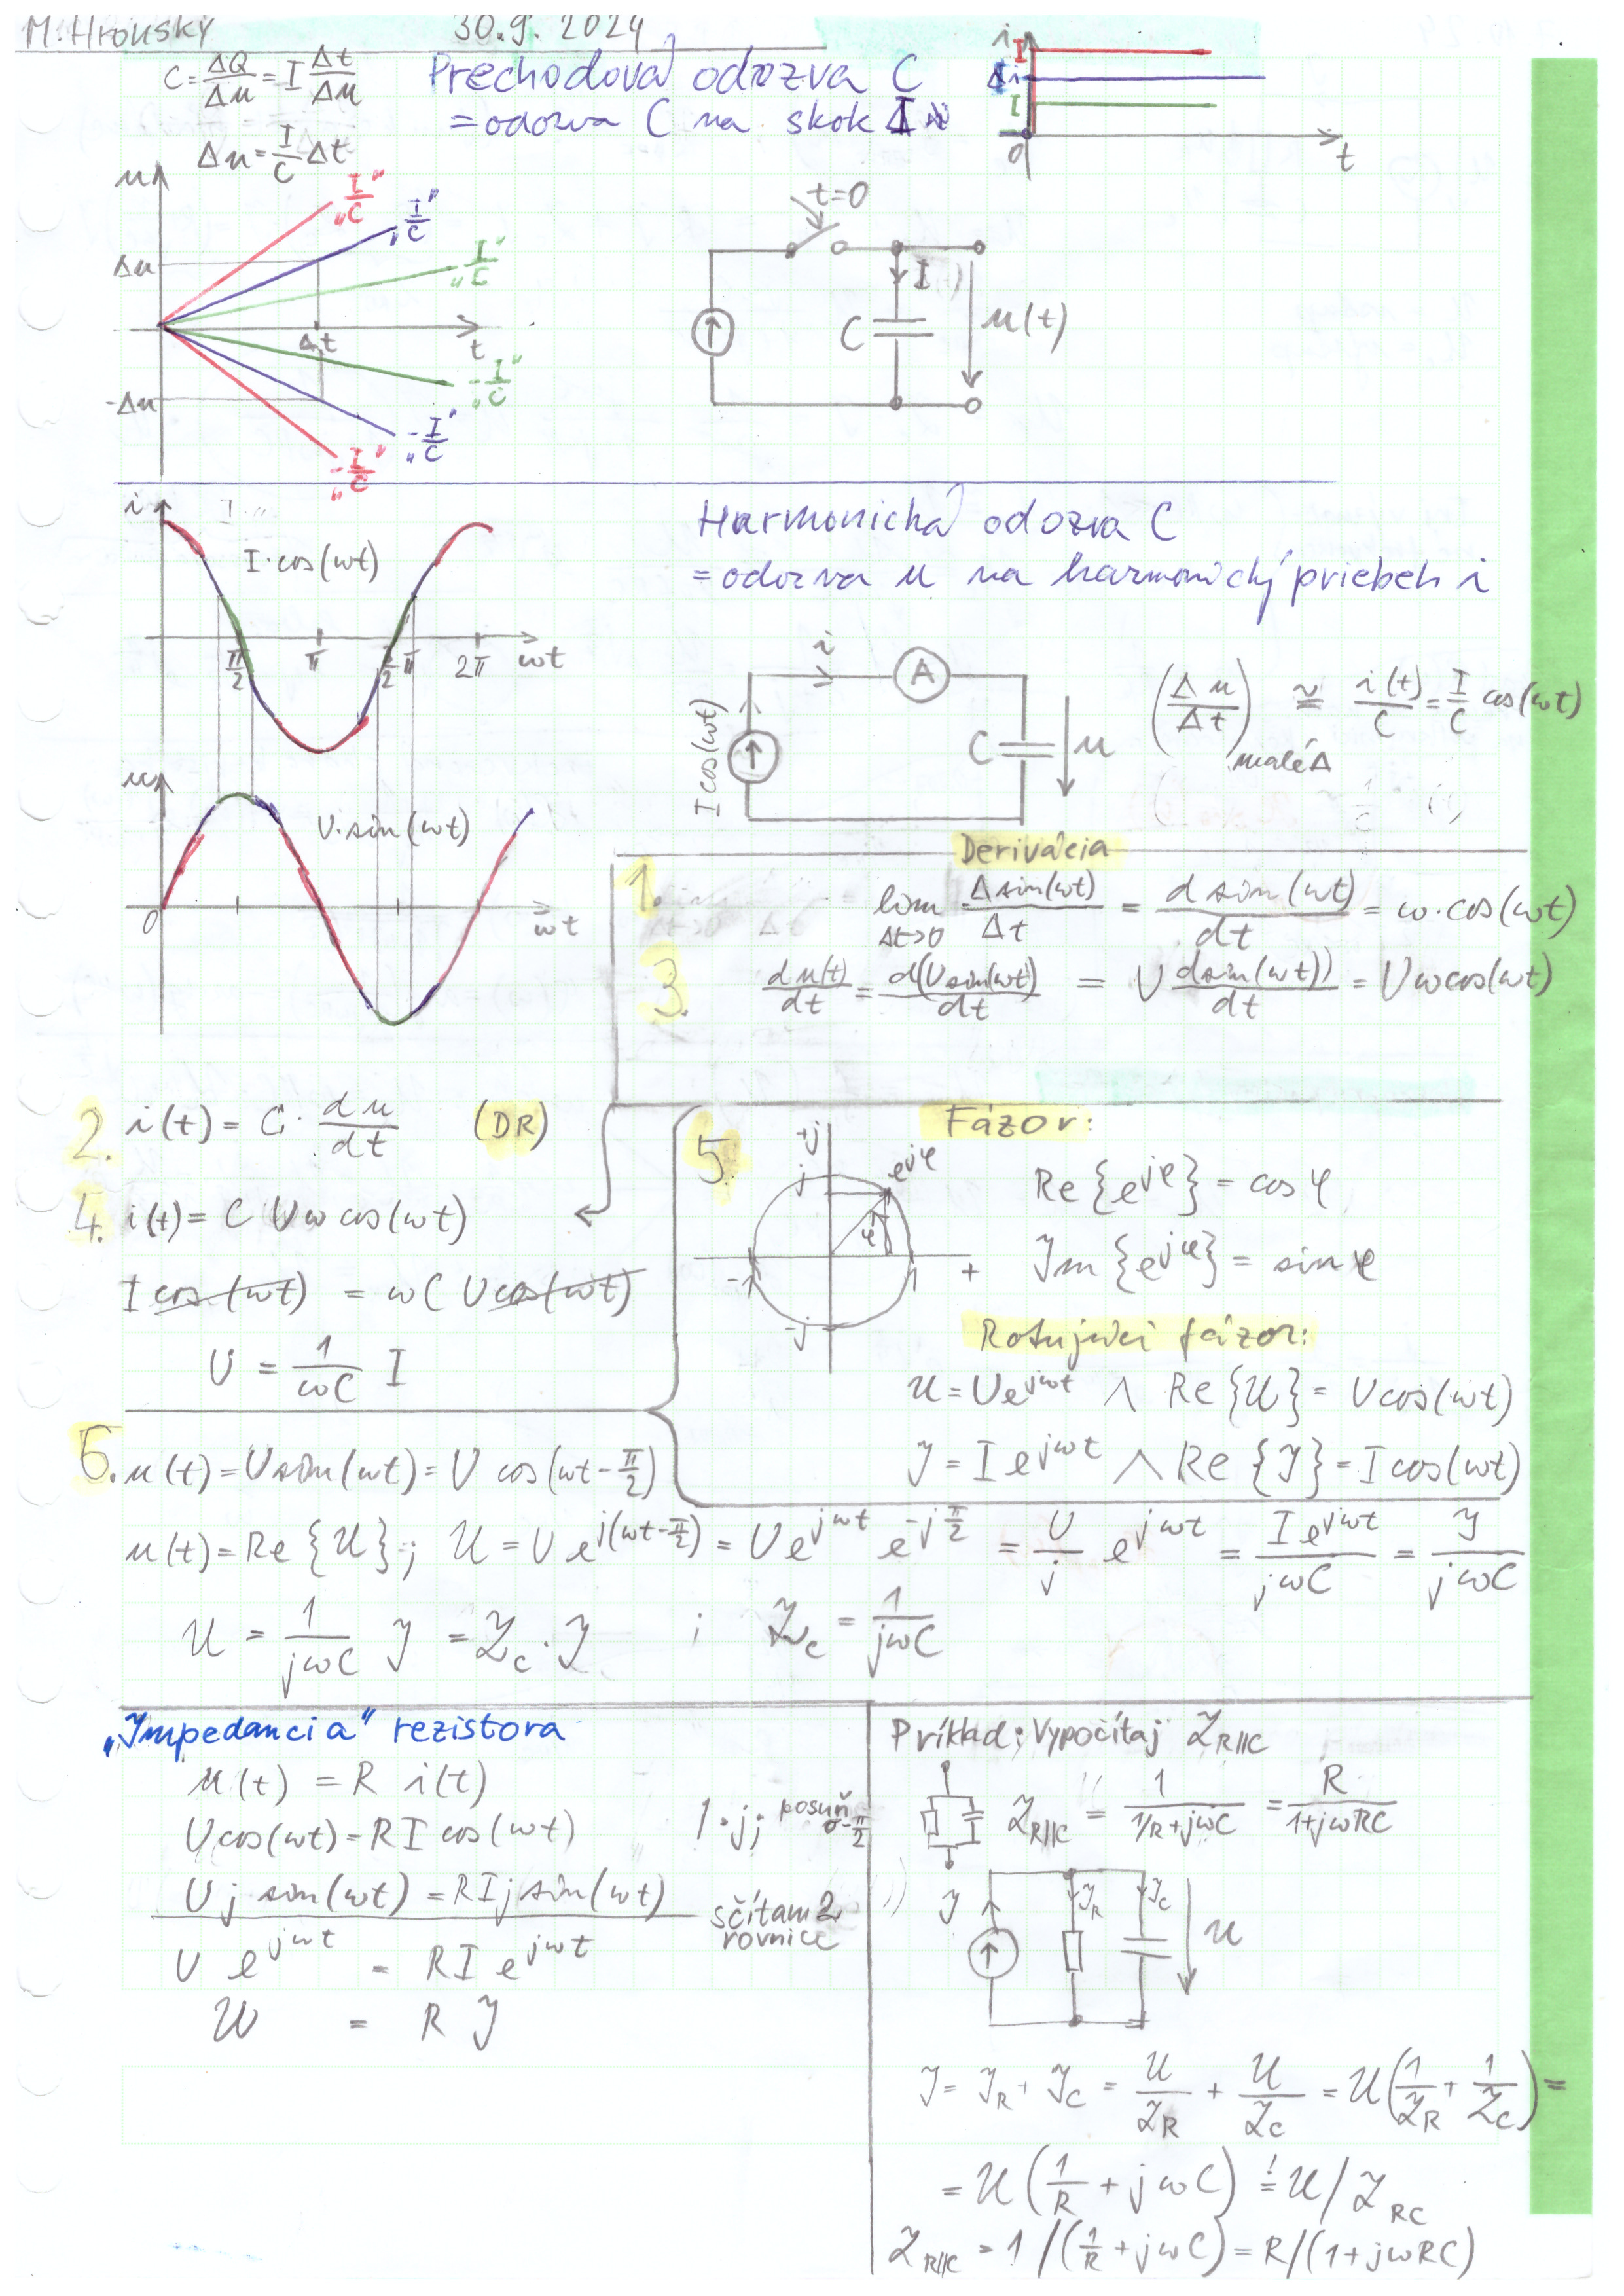 M. Hronský 30.9.2024
C = ΔQ/Δu = I Δt/Δu
Δu = I/C Δt
Prechodová odozva C
= odozva C na skok I
i
I
Δi
I
0
t
u
"I/C"
"I/C"
"I/C"
Δu
Δt
t
-Δu
"-I/C"
"-I/C"
"-I/C"
t=0
I
C
u(t)
i
I·cos(ωt)
π/2
π
3/2 π
2π
ωt
u
U·sin(ωt)
0
ωt
Harmonická odozva C
= odozva u na harmonický priebeh i
i
A
I cos(ωt)
C
u
(Δu/Δt) malé Δ ≅ i(t)/C = I/C cos(ωt)
Derivácia
1. lim Δt→0 Δsin(ωt)/Δt = d sin(ωt)/dt = ω·cos(ωt)
3. du(t)/dt = d(U sin(ωt)/dt = U dsin(ωt))/dt = Uωcos(ωt)
2. i(t) = C · du/dt (DR)
4. i(t) = C Uω cos(ωt)
I cos(ωt) = ωC U cos(ωt)
U = 1/ωC I
5. Fázor:
+j
j
e^jφ
φ
-1
1
+
-j
Re{e^jφ} = cos φ
Im{e^jφ} = sin φ
Rotujúci fázor:
U = Ue^jωt ∧ Re{U} = Ucos(ωt)
I = I e^jωt ∧ Re{I} = I cos(ωt)
6. u(t) = U sin(ωt) = U cos(ωt-π/2)
u(t) = Re{U}; U = U e^j(ωt-π/2) = U e^jωt e^-jπ/2 = U/j e^jωt = I e^jωt/jωC = I/jωC
U = 1/jωC I = Z_C · I ; Z_C = 1/jωC
„Impedancia" rezistora
u(t) = R i(t)
Ucos(ωt) = RI cos(ωt) /·j; posuň o -π/2
U j sin(ωt) = RI j sin(ωt)
sčítam 2 rovnice
U e^jωt = RI e^jωt
U = R I
Príklad: Vypočítaj Z_R||C
Z_R||C = 1/(1/R+jωC) = R/(1+jωRC)
I
I_R
I_C
U
I = I_R + I_C = U/Z_R + U/Z_C = U(1/Z_R + 1/Z_C) =
= U(1/R + jωC) != U/Z_RC
Z_R||C = 1/(1/R + jωC) = R/(1+jωRC)